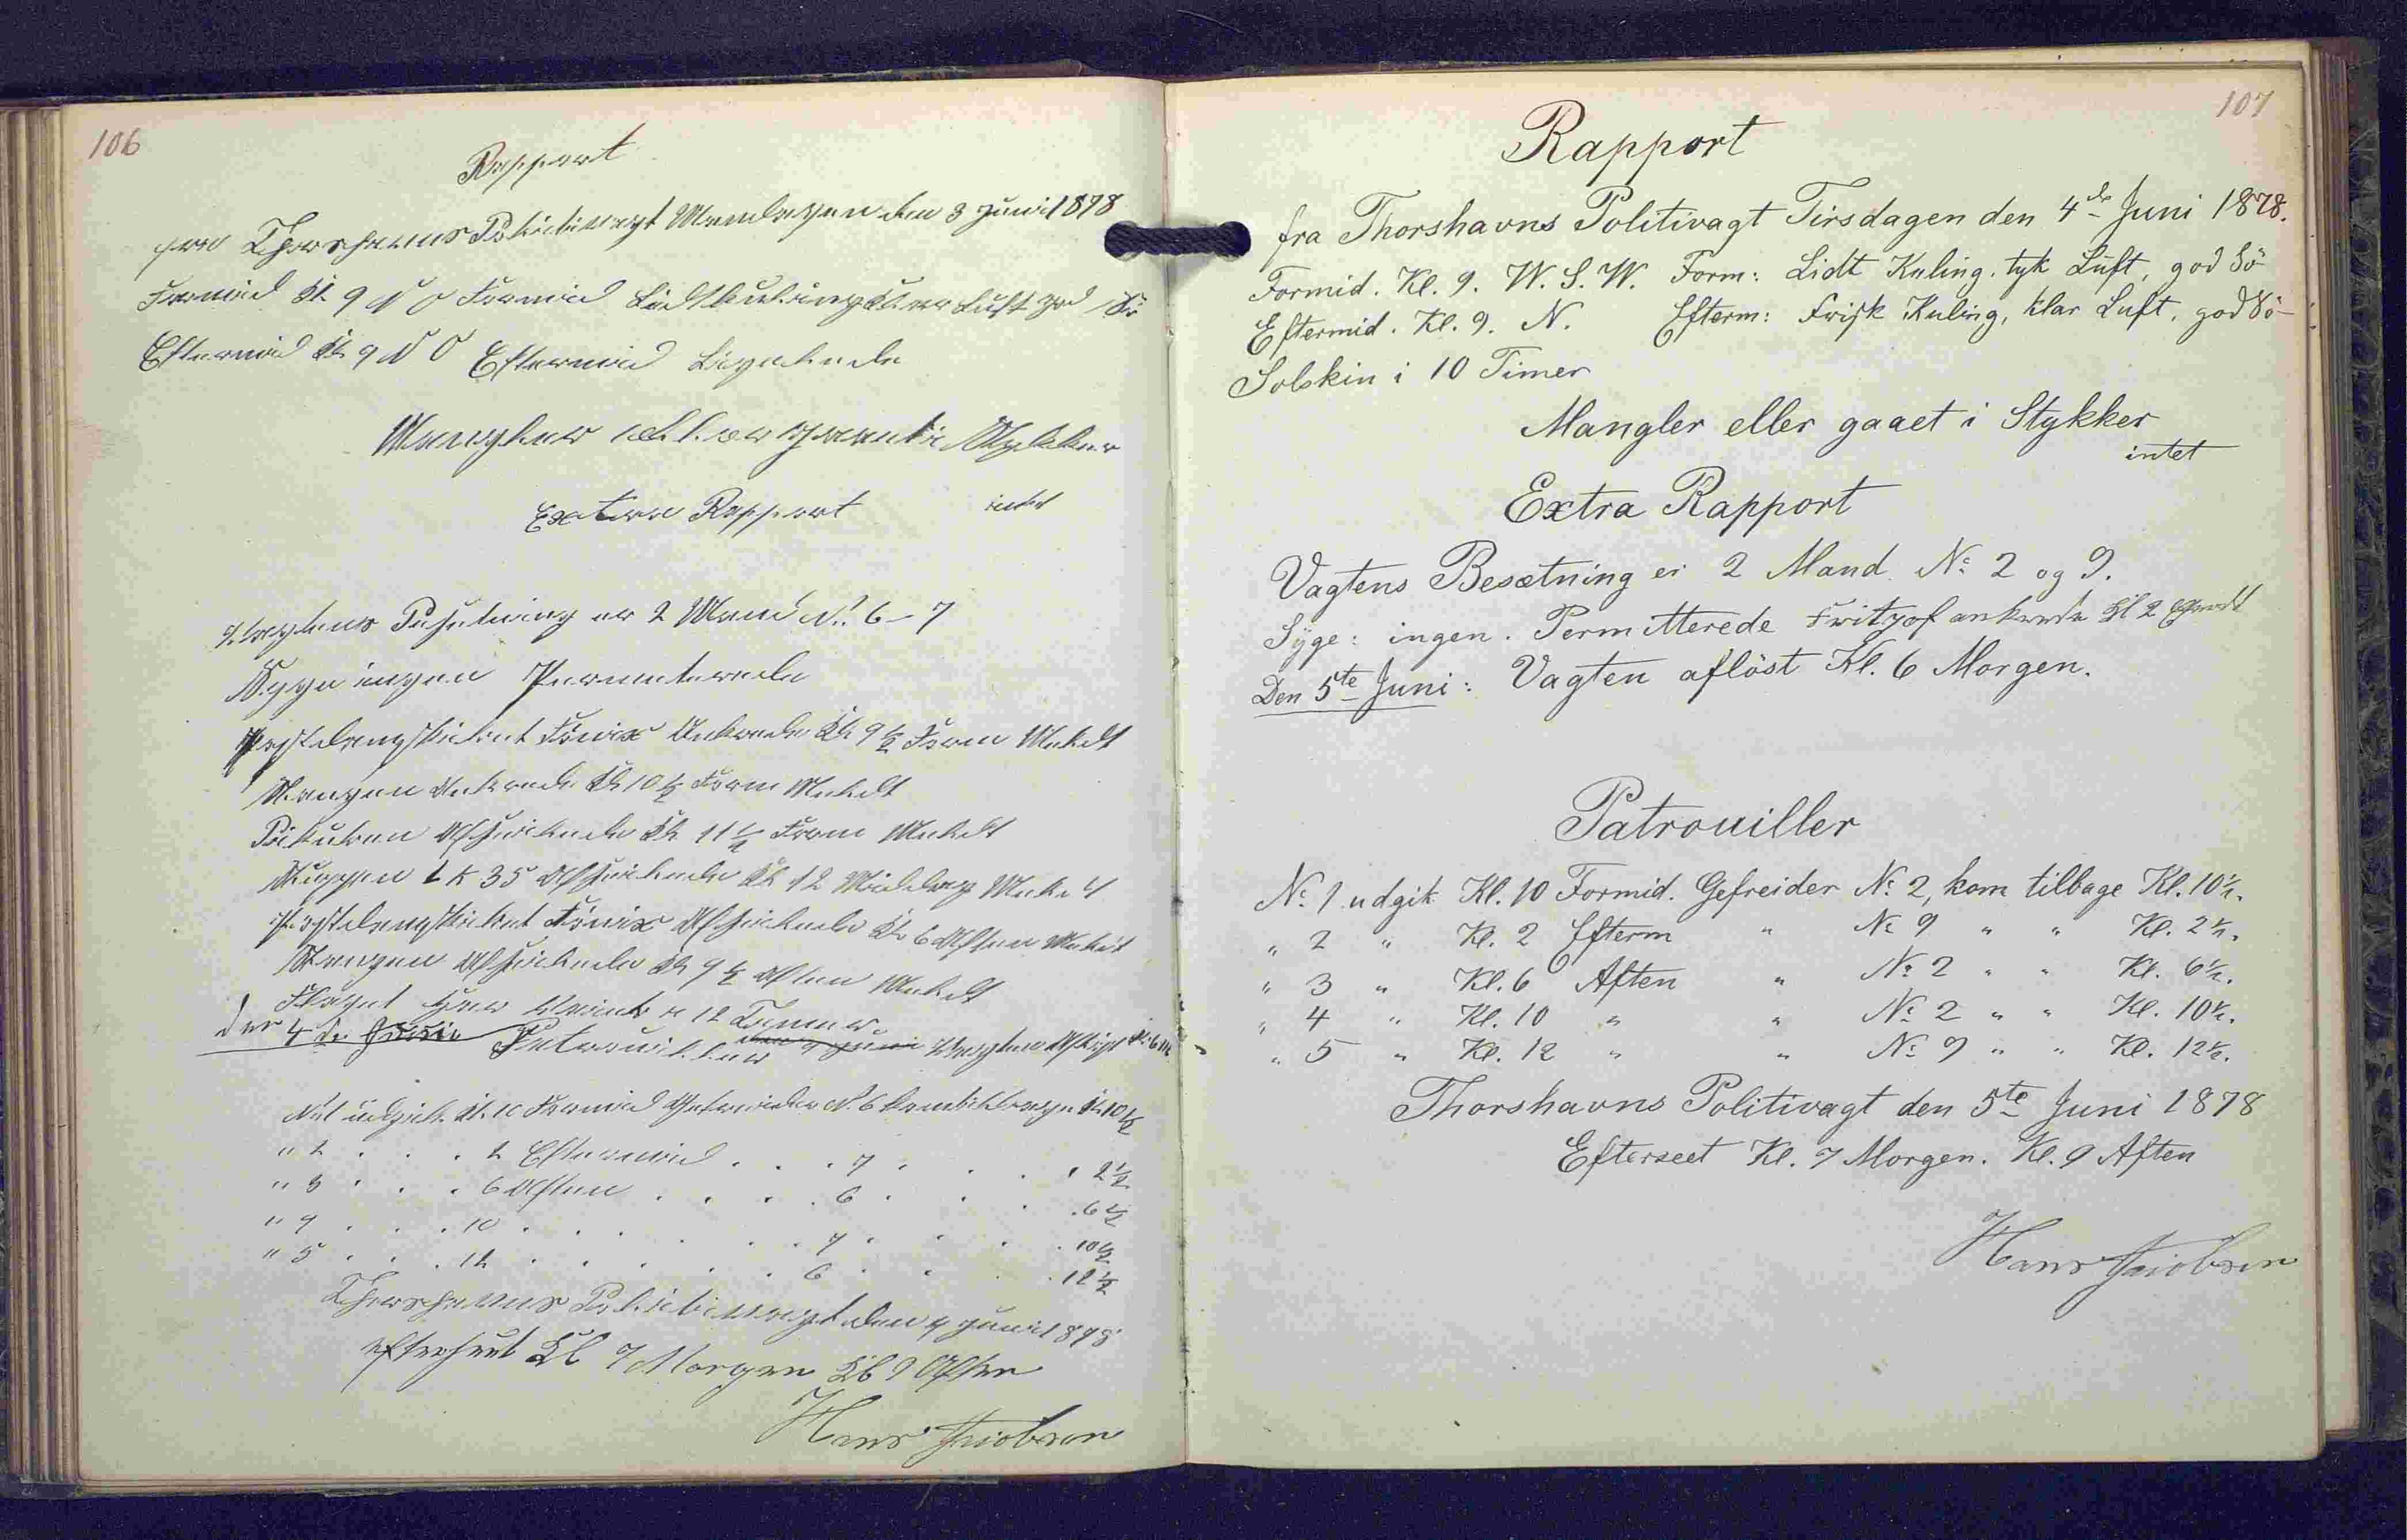 106
Rapport
fra Thorshavns Politivagt Mandagen den 3 Juni 1878
Formid Kl 9 N O Formid Lidt Kuling Klar Luft god Sö
Eftermid Kl 9 N O Eftermid Ligeledes
Mangler eller gaaet i Stykker
intet
Extra Rapport
Vagtens Besetning er 2 Mand N: 6 - 7
Syge ingen Permiterede
Ankrede Kl 9 1/2 Form Meldt
Ankrede Kl 10 1/2 Form Meldt
Afseilede Kl 11 1/2 Form Meldt
35 Afseilede Kl 12 Middag Meldt
Afseilede Kl 6 Aften Meldt
Afseilede Kl 9 1/2 Aften Meldt
Flaget har 12 Timer
den 4 de Juni Patrouiller Vagten Aflöst
N: 1 udgik Kl. 10 Formid Gefreider N: 6 kom tilbage Kl 10 1/2
" 2 . . . 2 Eftermid . . . 7 . . . . 2 1/2
" 3 . . . 6 Aften . . . . 6 . . . . 6 1/2
" 4 . . . 10 . . . . . . 7 . . . . 10 1/2
" 5 . . . 12 . . . . . . 6 . . . . 12 1/2
Thorshavns Politivagt den 4 Juni 1878
Efterseet Kl 7 Morgen Kl 9 Aften
Hans Jacobsen
107
Rapport
fra Thorshavns Politivagt Tirsdagen den 4de Juni 1878.
Formid. Kl. 9. W. S. W. Form: Lidt Kuling. tyk Luft, god Sö
Eftermid. Kl. 9. N. Efterm: Frisk Kuling, klar Luft. god Sö
Solskin i 10 Timer
Mangler eller gaaet i Stykker
intet
Extra Rapport
Vagtens Besætning er 2 Mand. No 2 og 9.
Syge: ingen. Permitterede Fritjof ankrede Kl 2
Den 5te Juni: Vagten aflöst Kl. 6 Morgen.
Patrouiller
No 1 udgik Kl. 10 Formid. Gefreider No 2, kom tilbage Kl. 10 1/2.
" 2 " Kl. 2 Efterm " No 9 " " Kl. 2 1/2.
" 3 " Kl. 6 Aften " No 2 " " Kl. 6 1/2.
" 4 " Kl. 10 " " No 2 " " Kl. 10 1/2.
" 5 " Kl. 12 " " No 9 " " Kl. 12 1/2.
Thorshavns Politivagt den 5te Juni 1878
Efterseet Kl. 7 Morgen. Kl. 9 Aften
Hans Jacobsen